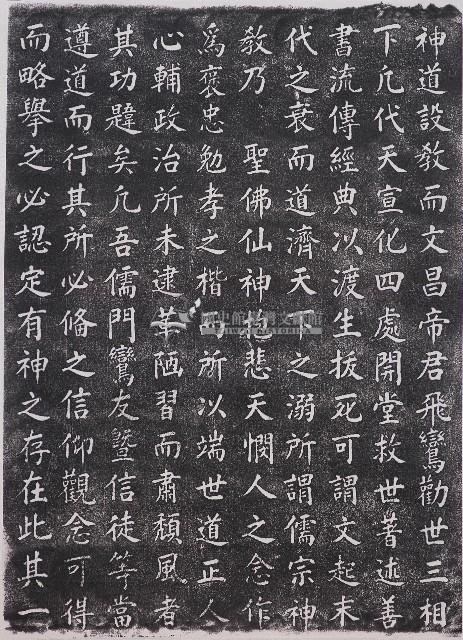 神道設教而文昌帝君飛鸞勸世三相
下凡代天宣化四處開堂救世著述善
書流傳經典以渡生拔死可謂文起末
代之衰而道濟天下之溺所謂儒宗神
教乃　聖佛仙神抱悲天憫人之念作
為褒忠勉孝之楷所以端世道正人
心輔政治所未逮革陋習而肅頹風者
其功韙矣凡吾儒門鸞友暨信徒等當
遵道而行其所必備之信仰觀念可得
而略舉之必認定有神之存在此其一
國史館臺灣文獻館
TAIWAN HISTORICA